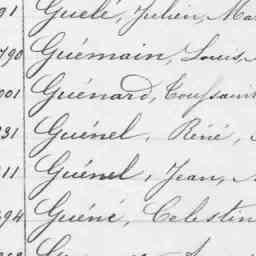 91 Guelé, Julien, Ma
790 Guémain, Louis,
001 Guénard, Toussain
331 Guénel, Réné,
11 Guénel, Jean,
494 Guéné, Celestin